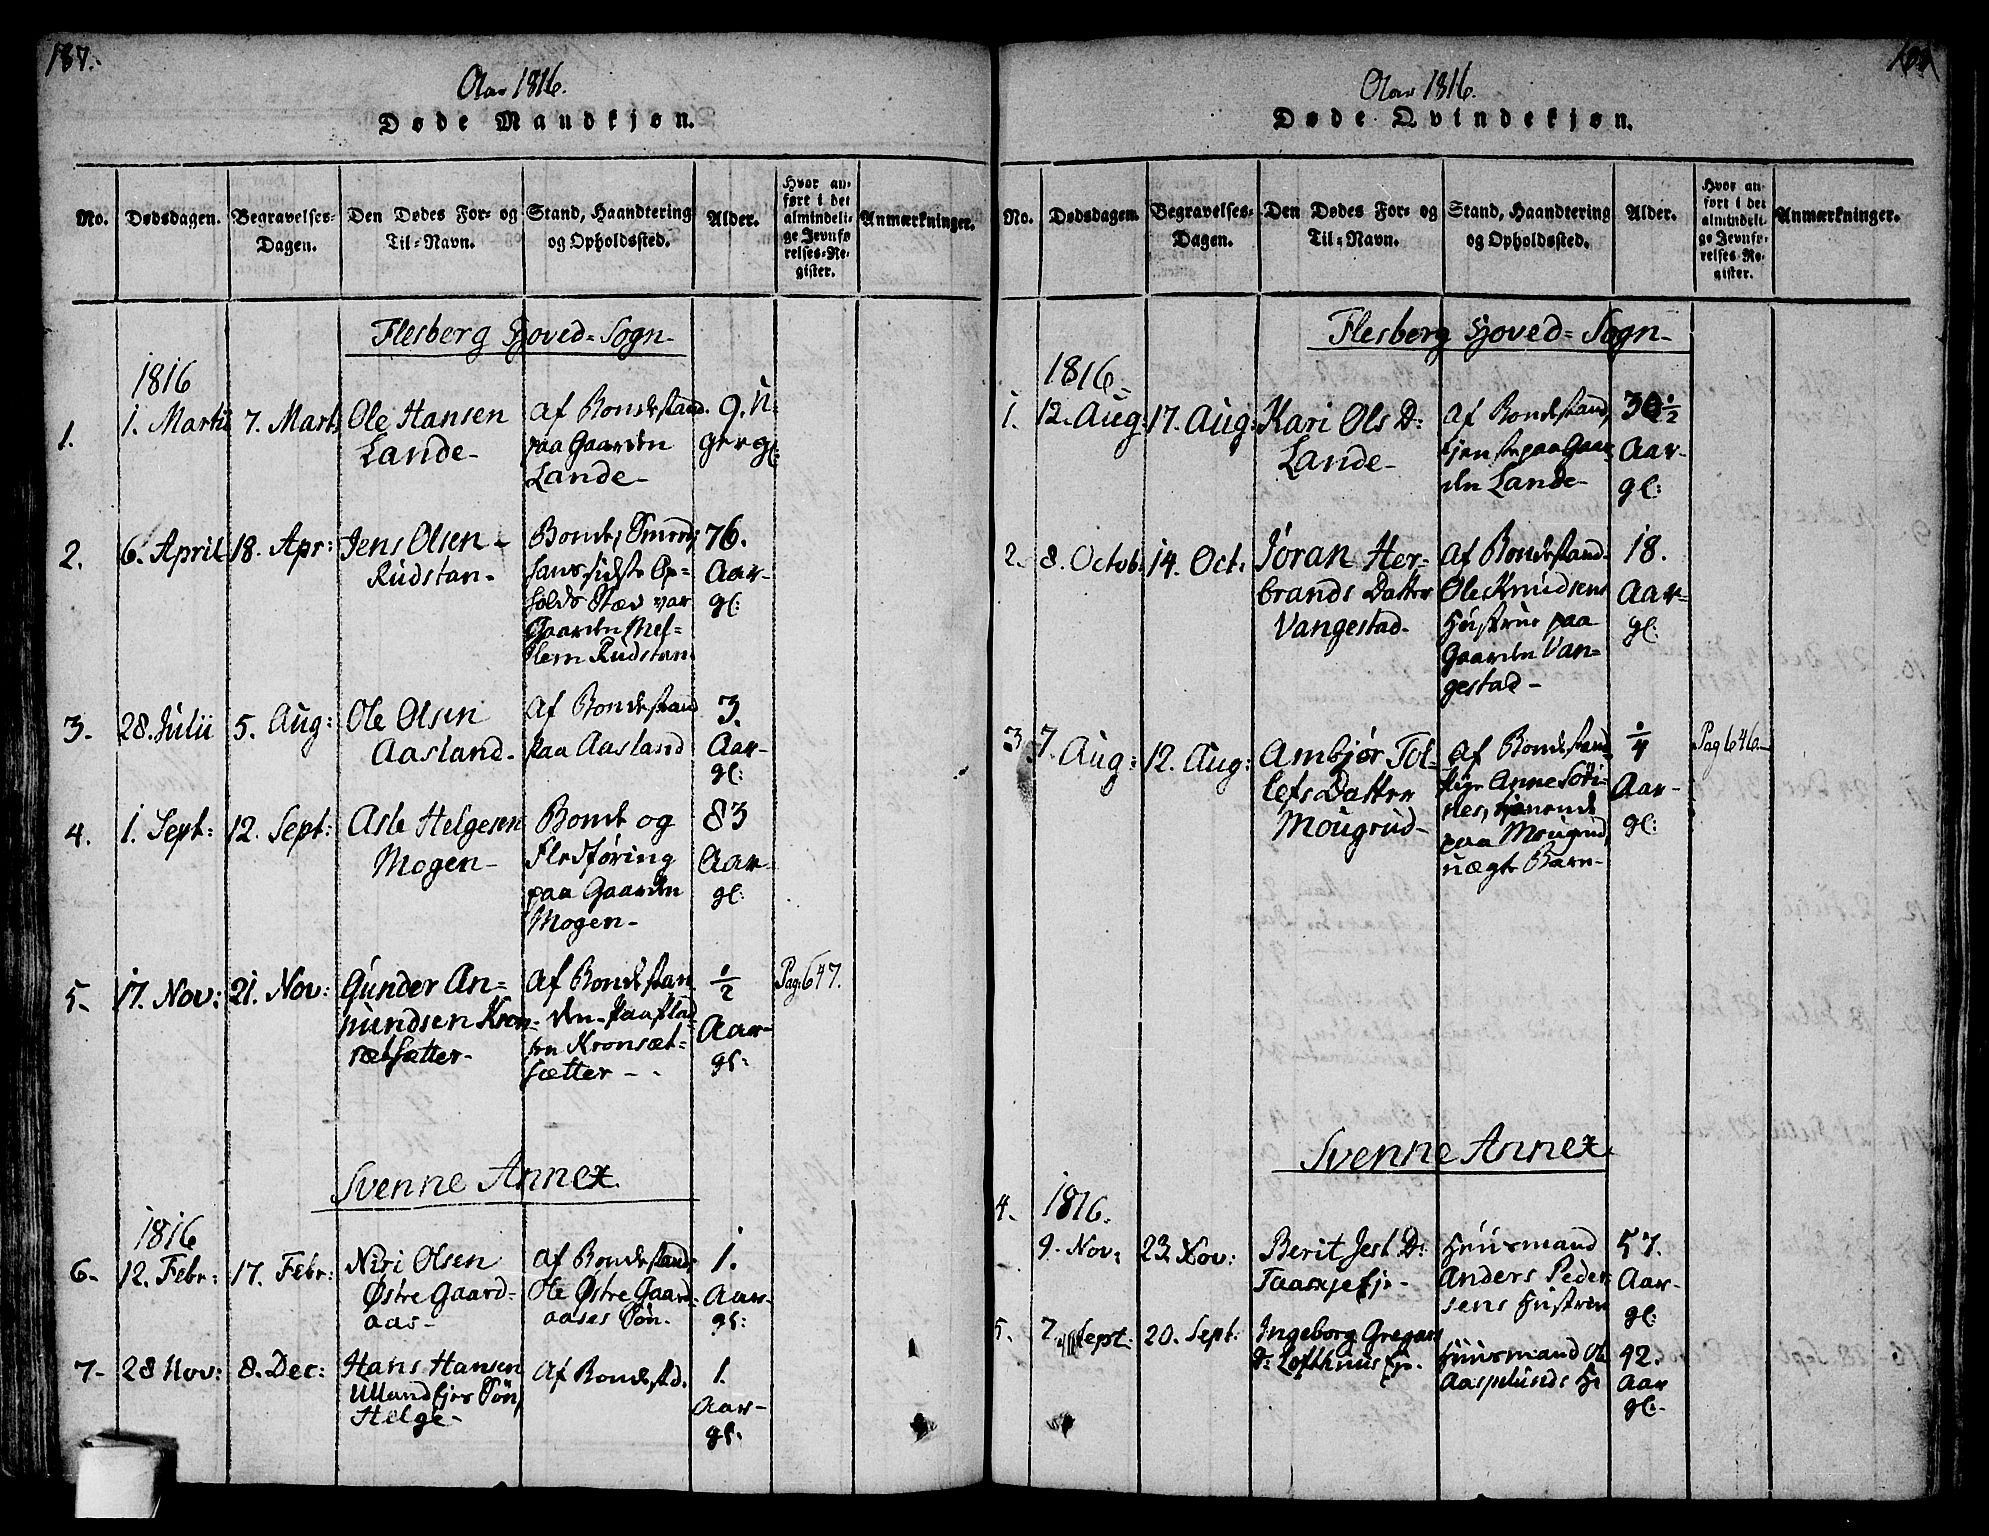 187.
Aar 1816.
Døde Mandkjøn.
No.
Dødsdagen.
Begravelses-
Dagen.
Den Dødes For- og
Til-Navn.
Stand, Haandtering
og Opholdssted.
Alder.
Hvor an-
ført i det
almindeli-
ge Jevnfø-
relses-Re-
gister.
Anmærkninger.
Flesberg Hoved-Sogn
1816
1.
1. Martii
7. Marts
Ole Hansen
Lande-
Af Bondestand.
paa Gaarden
Lande-
9. U-
ger gl:
2.
6. April
18. Apr:
Jens Olsen-
Rudstan-
Bonde,
hans sidste Op-
holds Stæd var
Gaarden Mel-
lem Rudstan
76.
Aar-
gl:
3-
28. Julii
5. Aug:
Ole Olsen
Aasland-
Af Bondestand
paa Aasland
3.
Aar-
gl:
4.
1. Sept:
12. Sept:
Asle Helgesen
Mogen-
Bonde og
Fledføring
paa Gaarden
Mogen-
83
Aar-
gl:
5-
17. Nov:
21. Nov:
Gunder An-
nundsen Kron-
sætsætter-
Af Bondestan-
den paa Plad-
sen Kronsæt-
sætter-
1/2
Aar-
gl:
Pag. 647.
Svenne Annex
1816
6-
12. Febr:
17. Febr:
Niri Olsen
Østre Gaard-
aas-
Af Bondestand
Ole Østre Gaard-
aases Søn.
1.
Aar-
gl:
7-
28 Nov:
8. Dec:
Hans Hansen
Ullandejes Søn,
Helge-
Af Bondestd.
1.
Aar-
gl.
Aar 1816.
Døde Qvindekjøn.
No.
Dødsdagen.
Begravelses-
Dagen.
Den Dødes For- og
Til-Navn.
Stand, Haandtering
og Opholdssted.
Alder.
Hvor an-
ført i det
almindeli-
ge Jevnfø-
relses-Re-
gister.
Anmærkninger.
Flesberg Hoved-Sogn-
1816-
1.
12. Aug:
17. Aug:
Kari Ols D:
Lande-
Af Bondestand,
tjenste paa Gaar-
den Lande-
30 1/2
Aar-
gl:
2.
8. Octob:
14. Oct.
Jøran Her-
brands Datter
Vangestad-
Af Bondestand-
Ole Knudsens
Hustrue paa
Gaarden Van-
gestad-
18.
Aar-
gl:
3.
7. Aug:
12. Aug:
Ambjør Tol-
lefs Datter
Mougrud-
Af Bondestand,
Pige Anne Søri-
nes, tjenende
paa Mougrud,
uægte Barn-
1/4
Aar-
gl:
Pag 646-
Svenne Annex
4.
1816.
9. Nov:
23 Nov:
Berit Jest D:
Taasejeje-
Huusmand
Anders Peder-
sens Hustrue
57.
Aar-
gl:
5.
7. Sept.
20. Sept:
Ingeborg Gregars
D: Lofthuus Ej-
Huusmand Ole
Aasplunds H
42.
Aar
gl: